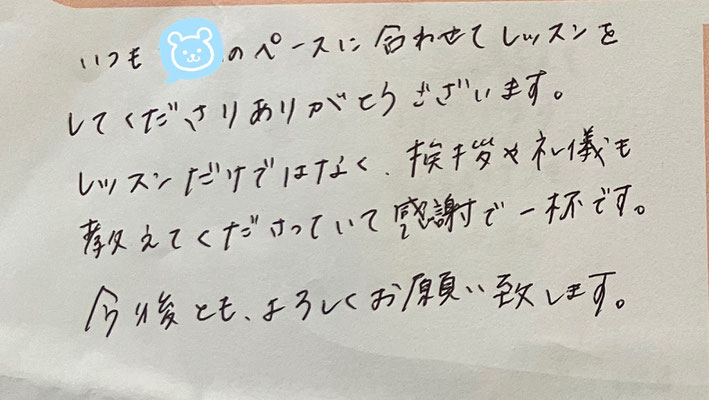 いつも のペースに合わせてレッスンを
してくださりありがとうございます。
レッスンだけではなく、挨拶や礼儀も
教えてくださっていて感謝で一杯です。
今後とも、よろしくお願い致します。